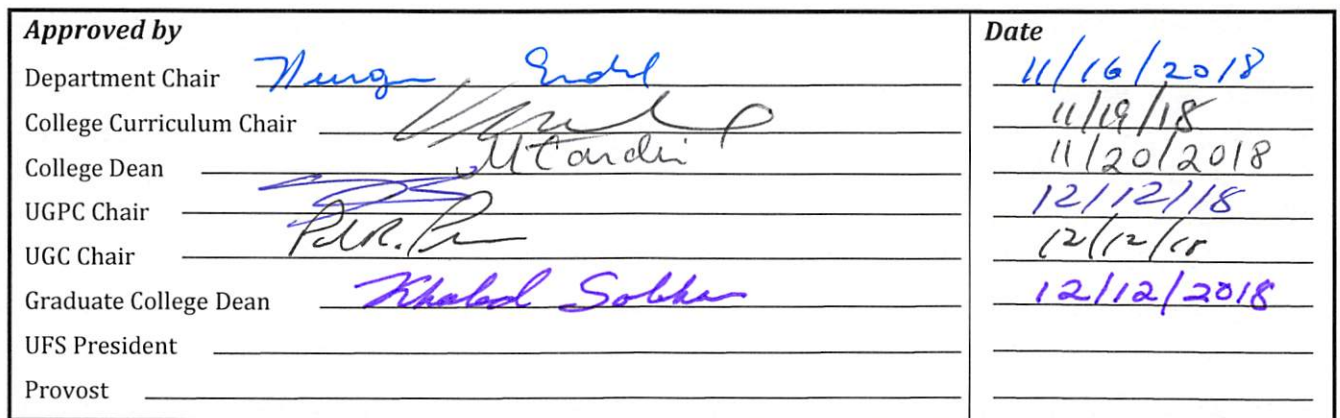 Approved by Date
Department Chair 11/16/2018
College Curriculum Chair 11/19/18
College Dean 11/20/2018
UGPC Chair 12/12/18
UGC Chair 12/12/18
Graduate College Dean Khaled Sobhan 12/12/2018
UFS President
Provost